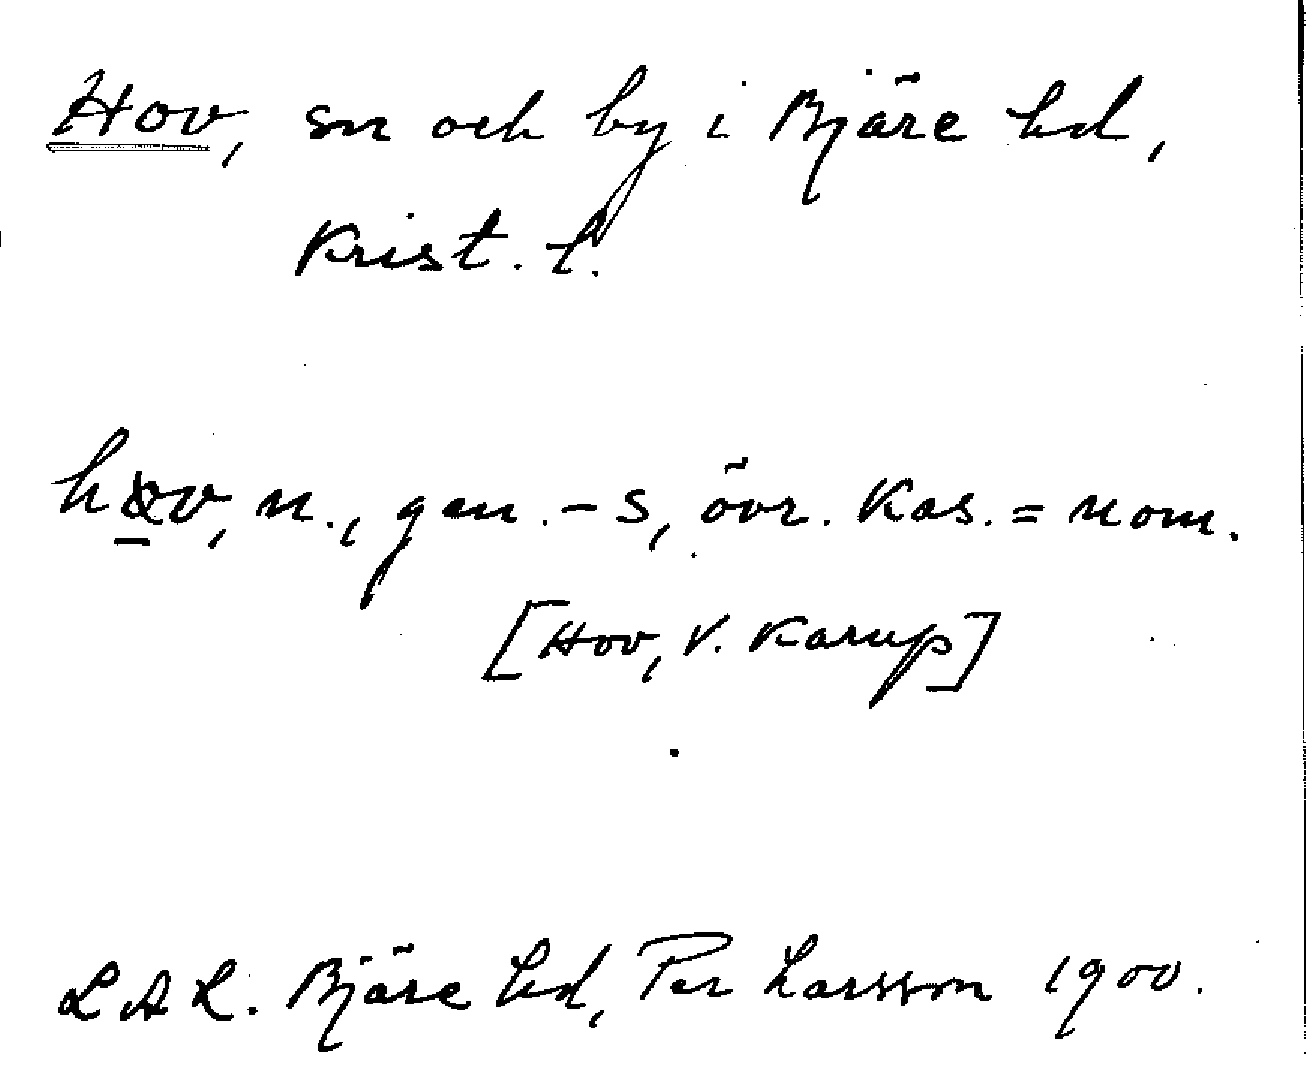 Hov, sn och by i Bjäre hd,
Krist. l.
gen. -s, övr. kas. = nom.
[Hov, V. Karup]
LAL. Bjäre hd, Per Larsson 1900.